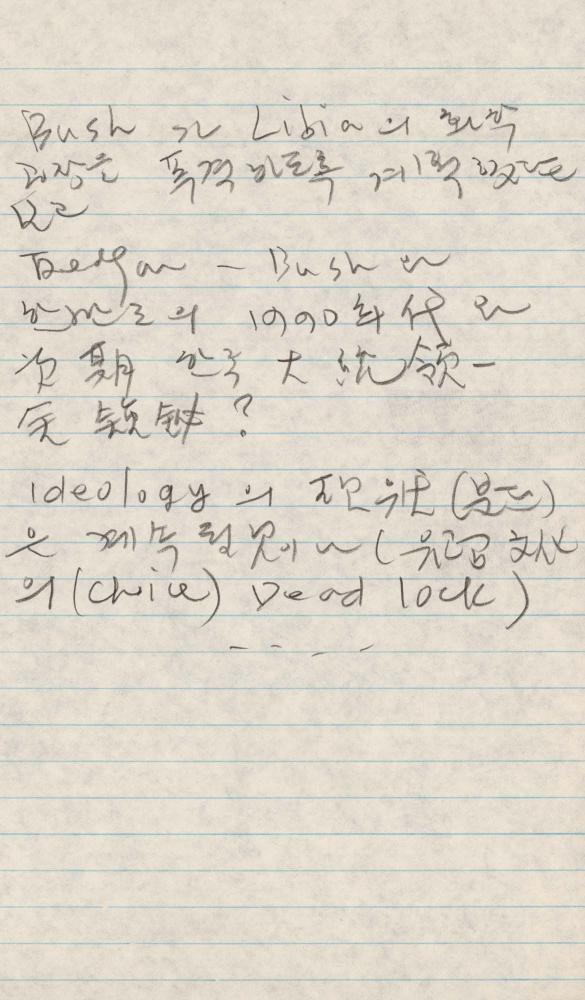 Bush가 Libia의 화학
공장을 폭격하도록 계획했다는
보고
Reagan - Bush와
한반도의 1990年代와
次期 한국 大統領-
ideology의 現 (분단)
은 계속 될것이냐 (유교 文化
의 (choice) Dead lock)